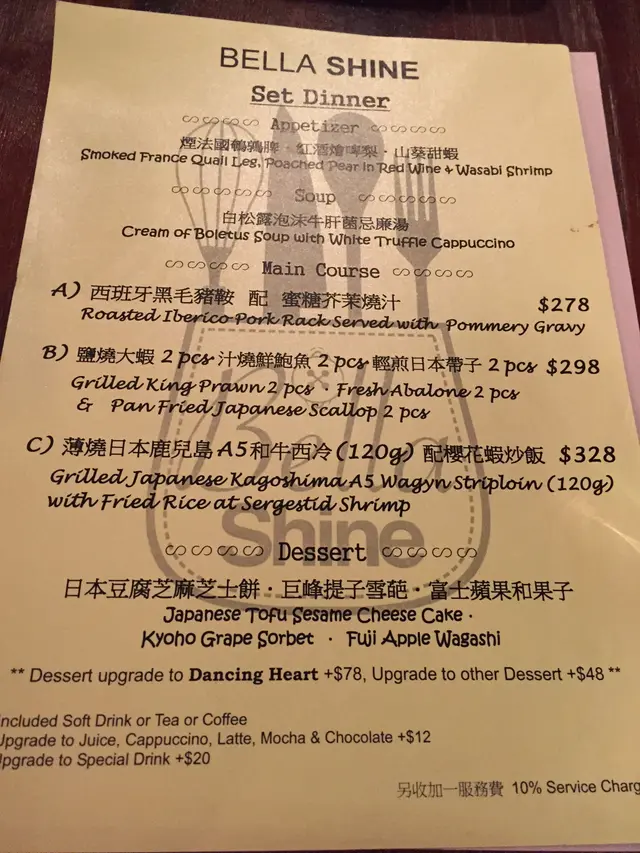 BELLA SHINE
Set Dinner
Appetizer
煙法國鵪鶉髀 · 紅酒燴啤梨 · 山葵甜蝦
Smoked France Quail Leg, Poached Pear in Red Wine & Wasabi Shrimp
Soup
白松露泡沫牛肝菌忌廉湯
Cream of Boletus Soup with White Truffle Cappuccino
Main Course
A) 西班牙黑毛豬鞍 配 蜜糖芥茉燒汁 $278
Roasted Iberico Pork Rack Served with Pommery Gravy
B) 鹽燒大蝦 2 pcs 汁燒鮮鮑魚 2 pcs 輕煎日本帶子 2 pcs $298
Grilled King Prawn 2 pcs · Fresh Abalone 2 pcs
& Pan Fried Japanese Scallop 2 pcs
C) 薄燒日本鹿兒島 A5和牛西冷 (120g) 配櫻花蝦炒飯 $328
Grilled Japanese Kagoshima A5 Wagyn Striploin (120g)
with Fried Rice at Sergestid Shrimp
Bella
Shine
Dessert
日本豆腐芝麻芝士餅 · 巨峰提子雪葩 · 富士蘋果和果子
Japanese Tofu Sesame Cheese Cake ·
Kyoho Grape Sorbet · Fuji Apple Wagashi
** Dessert upgrade to Dancing Heart +$78, Upgrade to other Dessert +$48 **
ncluded Soft Drink or Tea or Coffee
Upgrade to Juice, Cappuccino, Latte, Mocha & Chocolate +$12
Upgrade to Special Drink +$20
另收加一服務費 10% Service Charg